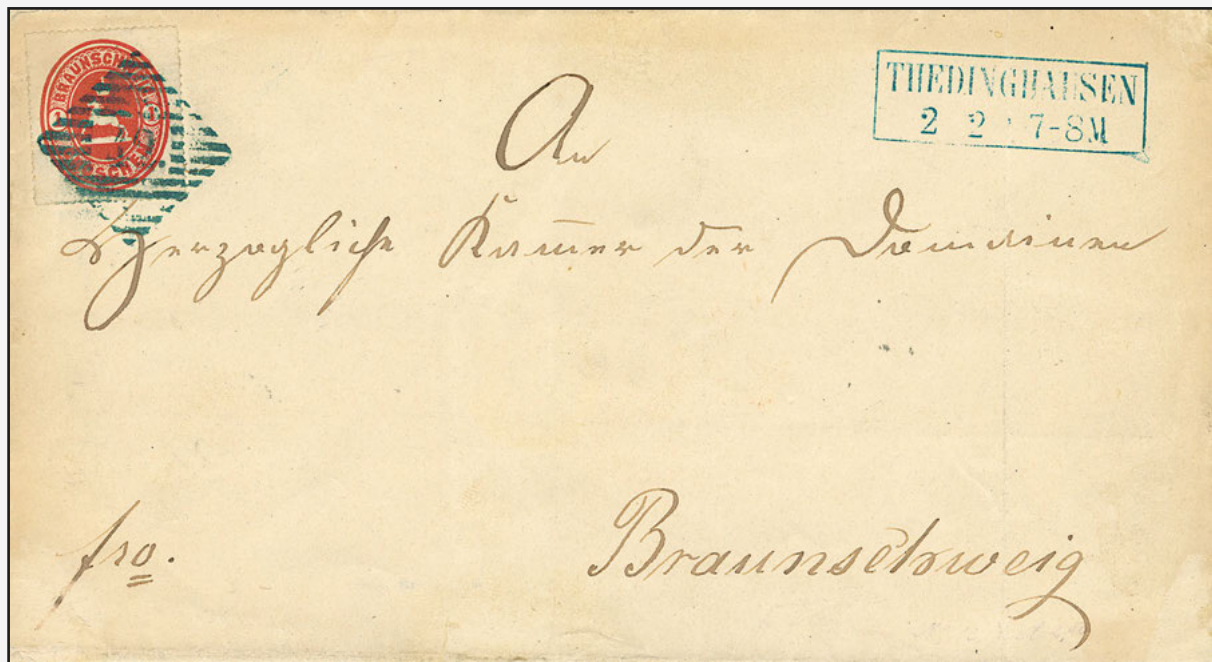 BRAUNSCHWEIG
1 GROSCHEN 1
THEDINGHAUSEN
2 2 7-8M
An
Herzogliche Kam̅er der Domainen
fro.
Braunschweig